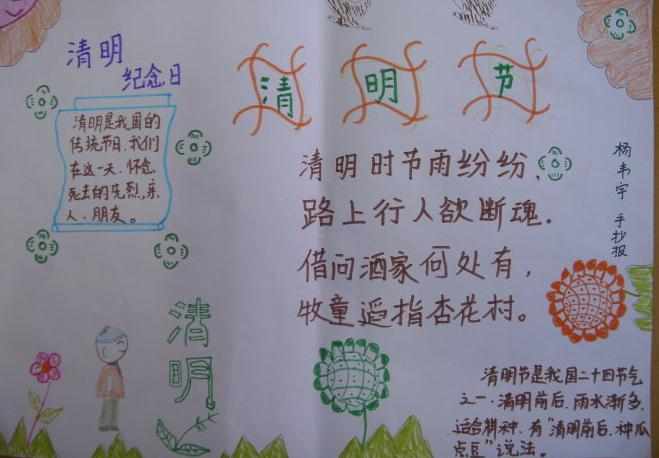 清明
纪念日
清明是我国的
传统节日,我们
在这一天、怀念
死去的先烈,亲
人、朋友。
清明节
清明时节雨纷纷,
路上行人欲断魂.
借问酒家何处有,
牧童遥指杏花村。
杨韦宇 手抄报
清明
清明节是我国二十四节气
之一.清明前后.雨水渐多.
适合耕种.有"清明前后.种瓜
点豆"说法。